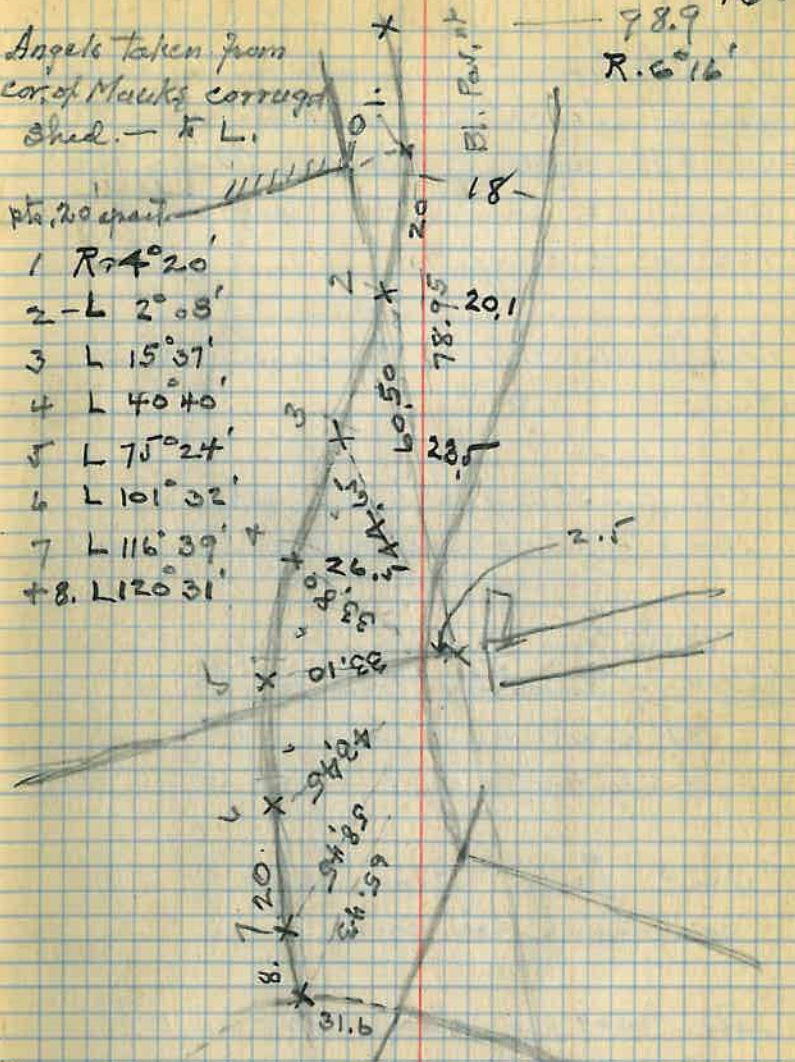 98.9
R. 6° 16'
Angels taken from
cor. of Mauks corrugd
shed. — to L.
pts, 20' apart
1 R 4° 20'
2 - L 2° 08'
3 L 15° 37'
4 L 40° 40'
5 L 75° 24'
6 L 101° 32'
7 L 116° 39'
+8. L 120° 31'
Bl. Pav.
0
1
18
20
2
20.1
78.95
60.50
3
23.5
44.65
4
26.5
33.80
2.5
5
33.10
6
58.45
65.43
20.
7
8.
31.6